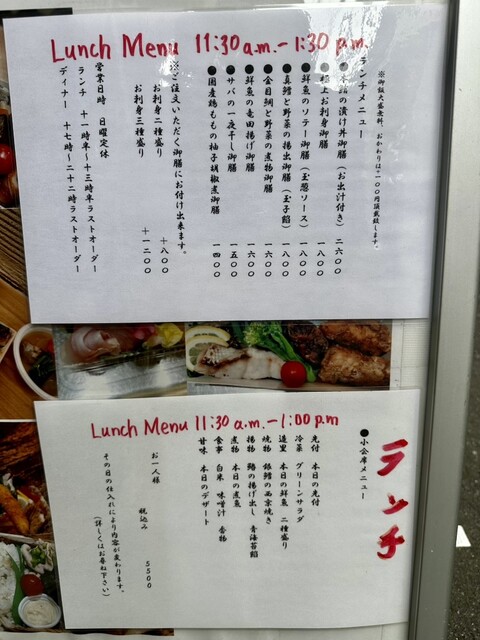 Lunch Menu 11:30 a.m. - 1:30 p.m.
※御飯大盛無料、おかわりは+100円頂戴致します。
ランチメニュー
鮪の漬け丼御膳(お出汁付き) 二六〇〇
上お刺身御膳 一八〇〇
●鮮魚のソテー御膳(玉葱ソース) 一八〇〇
●真鱈と野菜の揚出御膳(玉子餡) 一八〇〇
●金目鯛と野菜の煮物御膳 一六〇〇
●鮮魚の竜田揚げ御膳 一六〇〇
●サバの一夜干し御膳 一五〇〇
●国産鶏ももの柚子胡椒煮御膳 一四〇〇
※ご注文いただく御膳にお付け出来ます。
お刺身二種盛り +八〇〇
お刺身三種盛り +一二〇〇
営業日時 日曜定休
ランチ 十一時半〜十三時半ラストオーダー
ディナー 十七時〜二十二時ラストオーダー
Lunch Menu 11:30 a.m. - 1:00 p.m
ランチ
●小会席メニュー
先付 本日の先付
冷菜 グリーンサラダ
造里 本日の鮮魚 二種盛り
焼物 銀鱈の西京焼き
揚物 鰆の揚げ出し 青海苔餡
煮物 本日の煮魚
食事 白米 味噌汁 香物
甘味 本日のデザート
お一人様 税込み 5500
その日の仕入れにより内容が変わります。
(詳しくはお尋ね下さい)